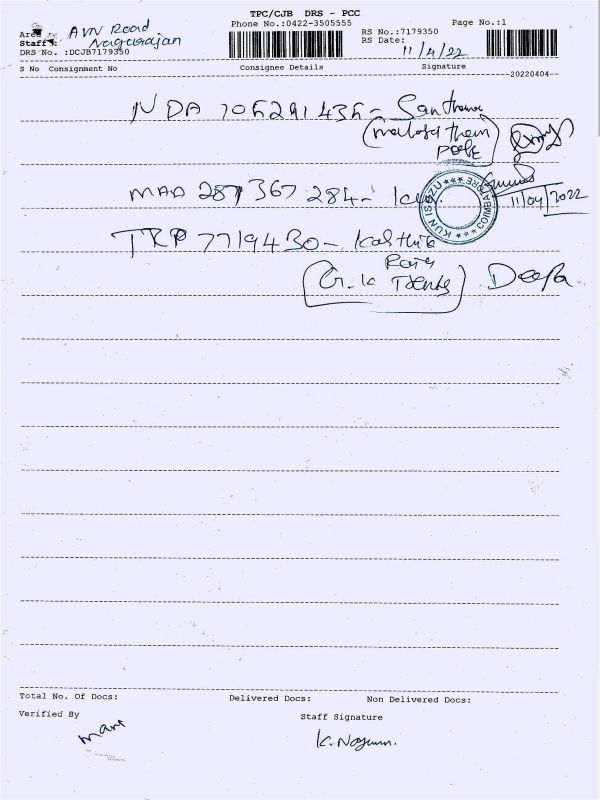 TPC/CJB DRS - PCC
Phone No.:0422-3505555
Page No.:1
Area : AVN Road
Staff : Nagarajan
DRS No. :DCJB7179350
RS No.:7179350
RS Date: 11/4/22
S No Consignment No Consignee Details Signature
20220404
NDA 706291436 - Santhana
MAD 287367284 -
KUN ISUZU *** COIMBATORE ***
11/04/2022
TRP 7719430 - Karthik
Raja
(G.K Deepa
Total No. Of Docs: Delivered Docs: Non Delivered Docs:
Verified By Staff Signature
mani